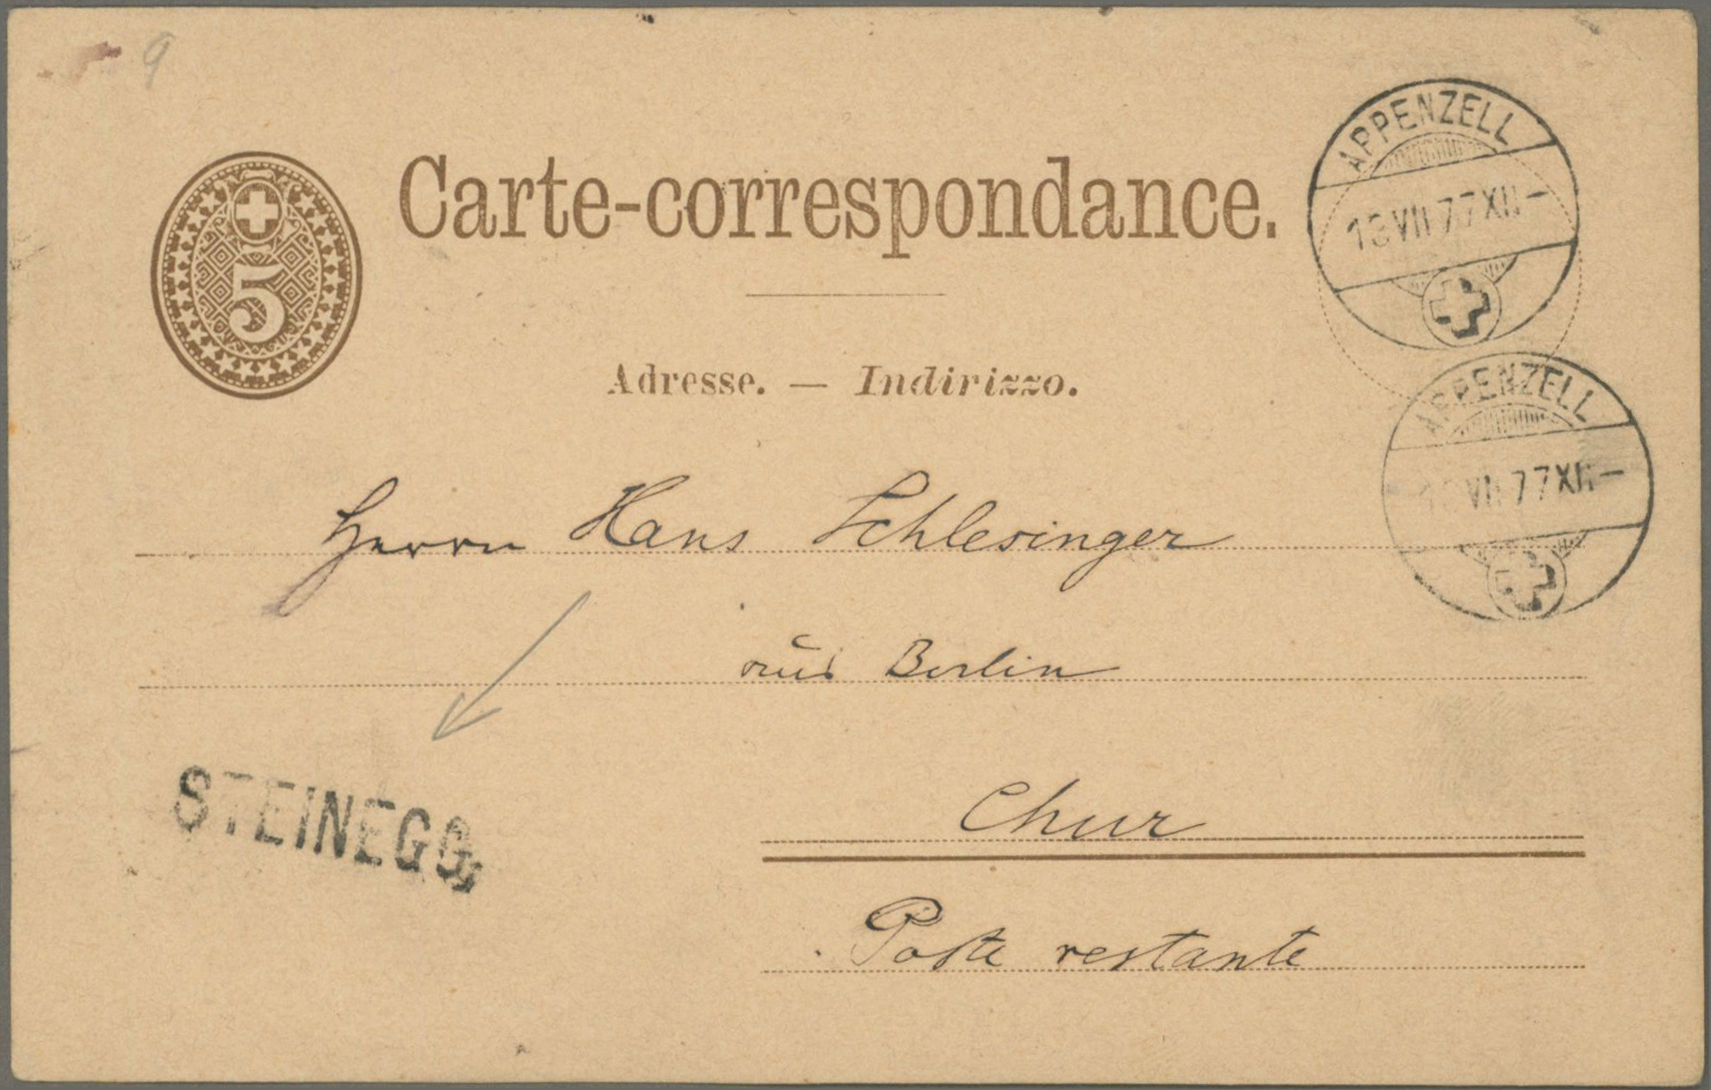 9
5
Carte-correspondance.
APPENZELL
13 VII 77 XII –
Adresse. — Indirizzo.
APPENZELL
13 VII 77 XII –
Herrn Hans Schlesinger
aus Berlin
STEINEGG.
Chur
Poste restante